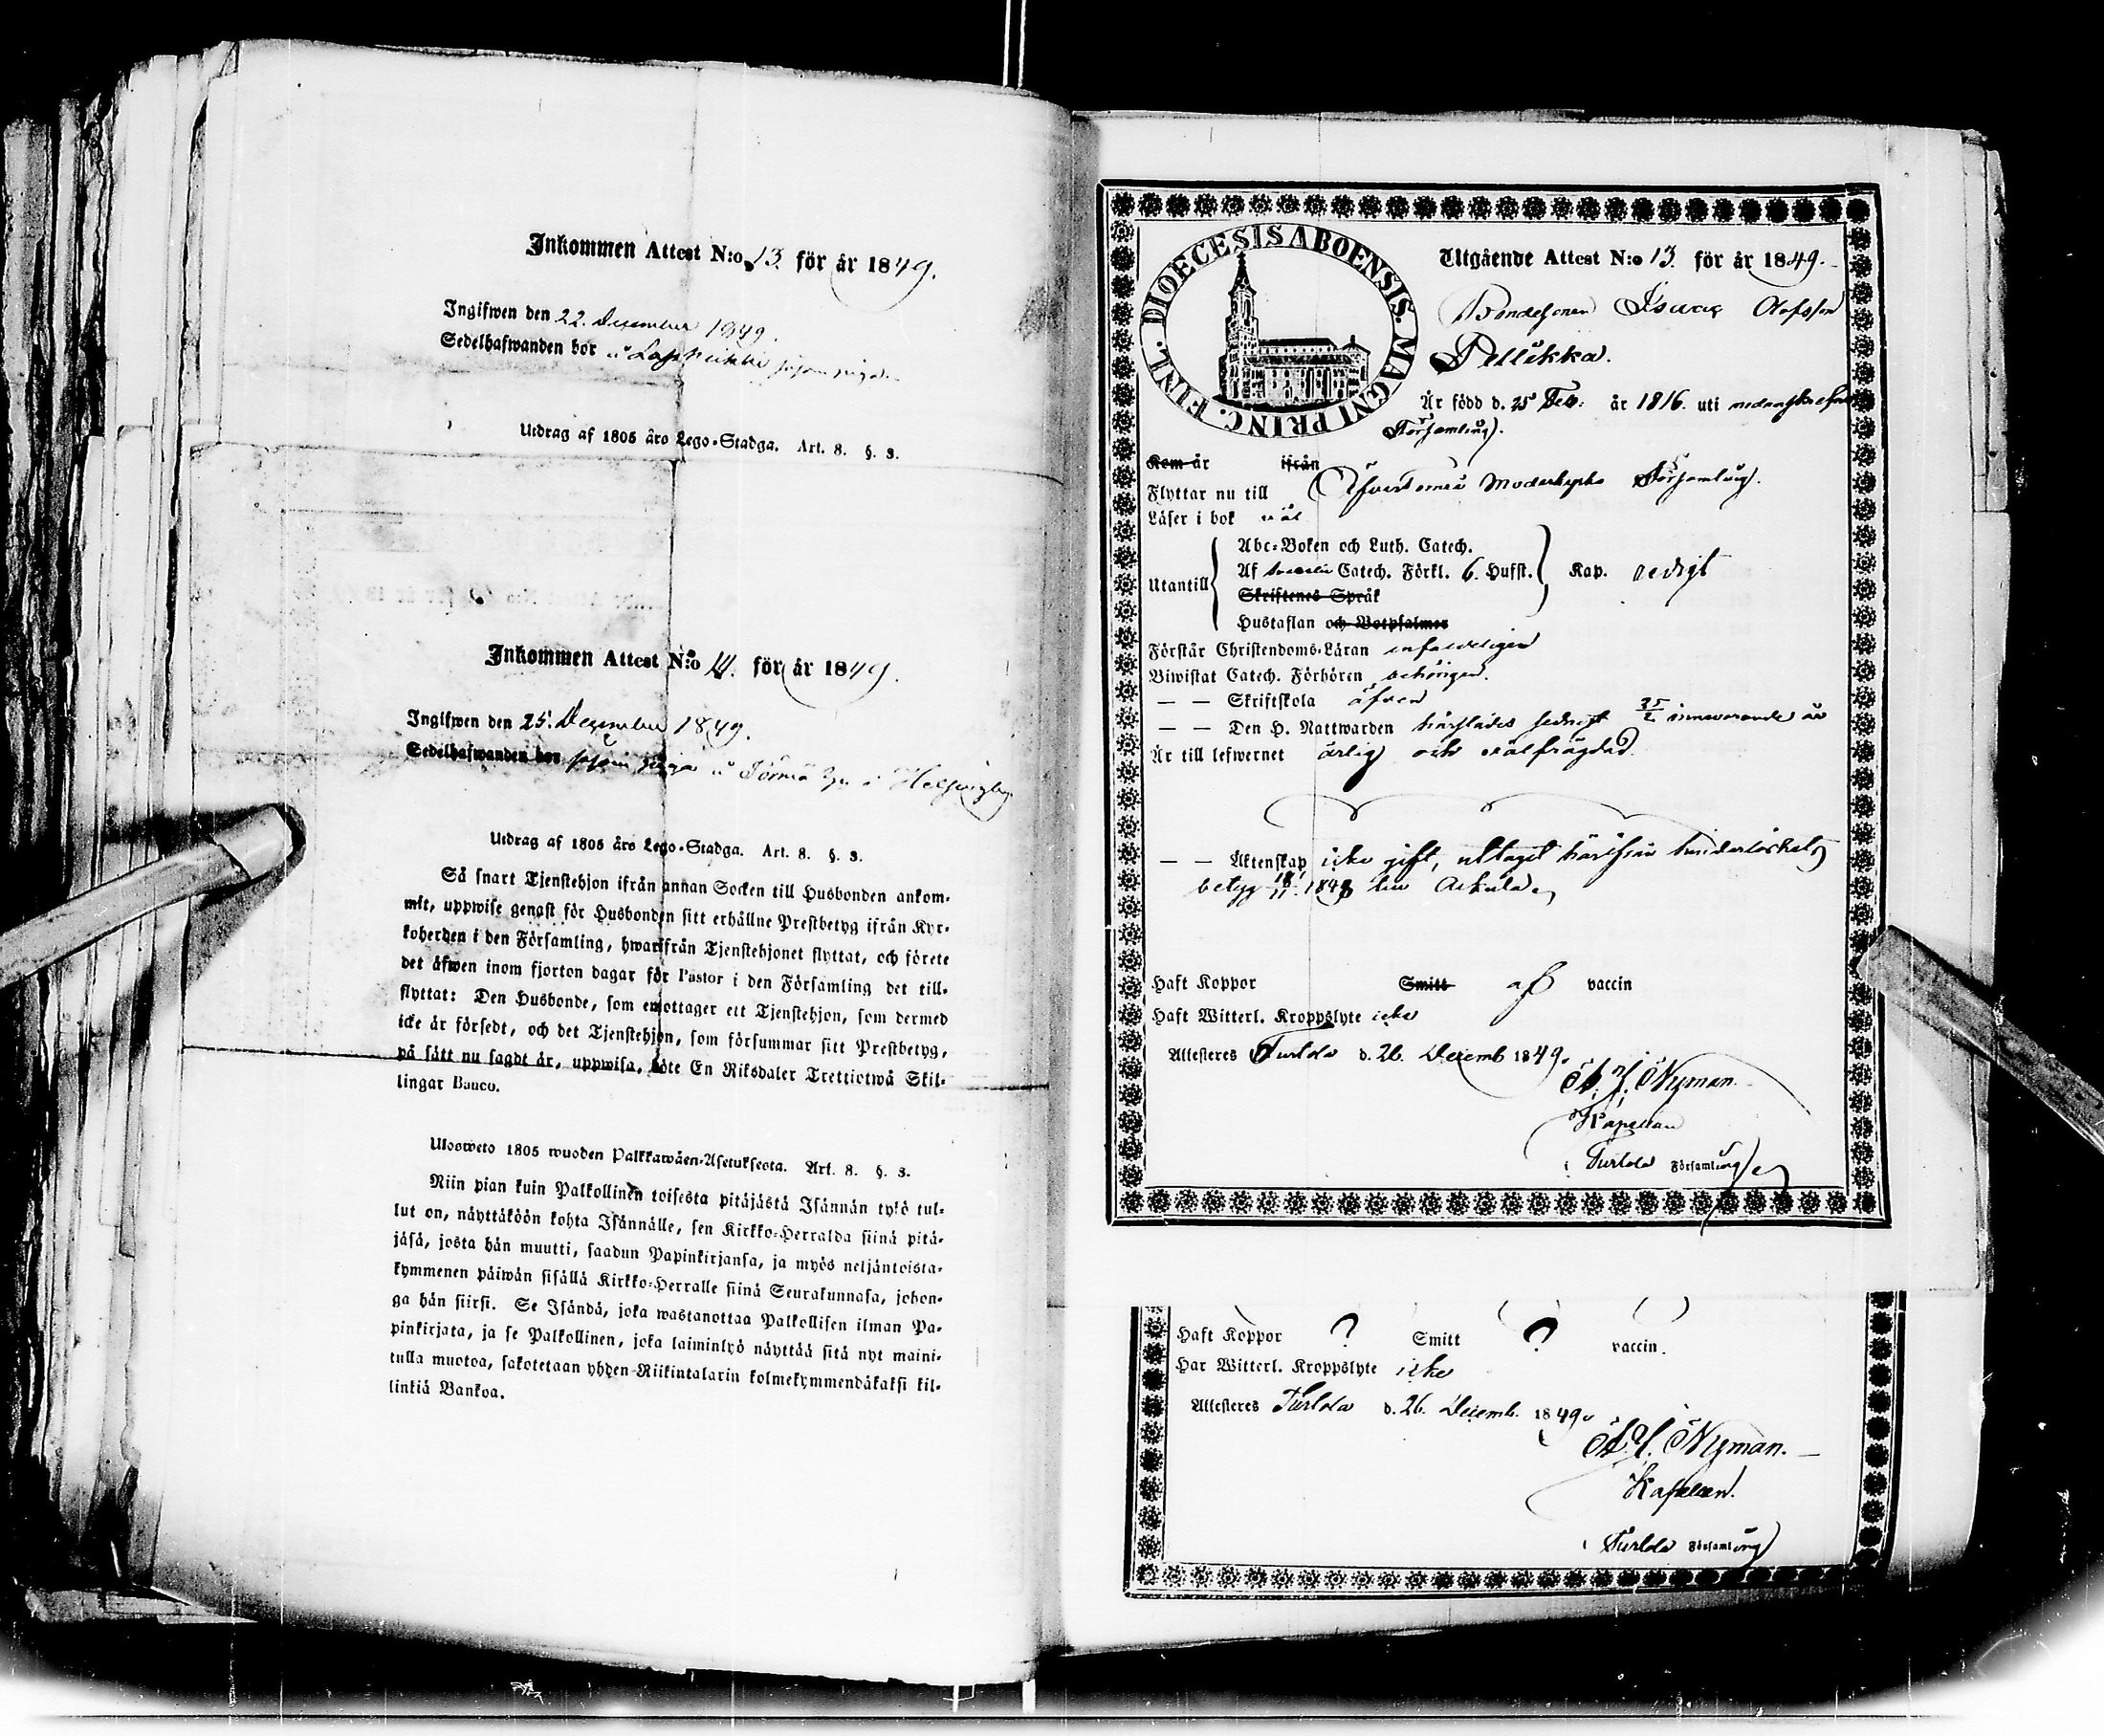 Inkommen Attest N:o 13. för år 1849.
Ingifwen den 22. December 1849.
Sedelhafwanden bor
Utdrag af 1805 års Lego-Stadga. Art. 8. §. 3.
Inkommen Attest N:o 14. för år 1849.
Ingifwen den 25. December 1849.
Sedelhafwanden bor såsom piga i
Utdrag af 1805 års Lego-Stadga. Art. 8. §. 3.
Så snart Tjenstehjon ifrån annan Socken till Husbonden ankom-
mit, uppwise genast för Husbonden sitt erhållne Prestbetyg ifrån Kyr-
koherden i den Församling, hwarifrån Tjenstehjonet flyttat, och förete
det äfwen inom fjorton dagar för Pastor i den Församling det till-
flyttat: Den Husbonde, som emottager ett Tjenstehjon, som dermed
icke är försedt, och det Tjenstehjon, som försummar sitt Prestbetyg,
på sätt nu sagdt är, uppwisa, böte En Riksdaler Trettiotwå Skil-
lingar Banco.
Ulosweto 1805 wuoden Palkkawäen-Asetuksesta. Art. 8. §. 3.
Niin pian kuin Palkollinen toisesta pitäjästä Isännän tykö tul-
lut on, näyttäköön kohta Isännälle, sen Kirkko-Herralda siinä pitä-
jäsä, josta hän muutti, saadun Papinkirjansa, ja myös neljäntoista-
kymmenen päiwän sisällä Kirkko-Herralle siinä Seurakunnasa, johon-
ga hän siirsi. Se Isändä, joka wastanottaa Palkollisen ilman Pa-
pinkirjata, ja se Palkollinen, joka laiminlyö näyttää sitä nyt maini-
tulla muotoa, sakotetaan yhden Riikintalarin kolmekymmendäkaksi kil-
linkiä Bankoa.
DIOECESIS ABOENSIS. MAGNI PRINC. FINL.
Utgående Attest N:o 13. för år 1849.
Bondesonen Isaac Olofsson
Pellikka.
Är född d. 25 Feb: år 1816. uti
Församling.
Kom år ifrån
Flyttar nu till Öfvertorneå Moderkyrko Församling.
Läser i bok väl
Utantill
Abc-Boken och Luth. Catech.
Af Catech. Förkl. 6. Hufst. Kap. redigt
Skriftenes Språk
Hustaflan och Botpsalmer
Förstår Christendoms-Läran enfaldeligen
Biwistat Catech. Förhören behörigen.
— — Skriftskola äfven
— — Den H. Nattwarden härstädes sednast 25/2 innevarande år
Är till lefwernet ärlig och välfrägdad.
— — Äktenskap icke gift, uttaget härifrån hinderlöshets
betyg
Haft Koppor Smitt af vaccin
Haft Witterl. Kroppslyte icke
Attesteres Turtola d. 26. Decemb 1849.
A. J. Nyman.
Kapellan
i Turtola Församling
Haft Koppor ? Smitt ? vaccin.
Har Witterl. Kroppslyte icke
Attesteres Turtola d. 26. Decemb. 1849.
A. J. Nyman.
Kapellan.
i Turtola Församling